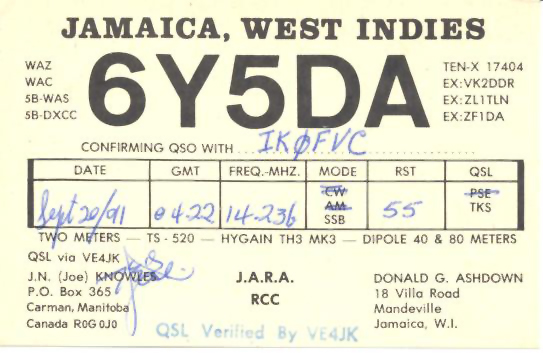 JAMAICA, WEST INDIES
WAZ
WAC
5B-WAS
5B-DXCC
6Y5DA
TEN-X 17404
EX:VK2DDR
EX:ZL1TLN
EX:ZF1DA
CONFIRMING QSO WITH IKØFVC
DATE GMT FREQ.-MHZ. MODE RST QSL
Sept 20/91 0422 14.236 CW AM SSB 55 PSE TKS
TWO METERS — TS - 520 — HYGAIN TH3 MK3 — DIPOLE 40 & 80 METERS
QSL via VE4JK
J.N. (Joe) KNOWLES
P.O. Box 365
Carman, Manitoba
Canada R0G 0J0
J.A.R.A.
RCC
DONALD G. ASHDOWN
18 Villa Road
Mandeville
Jamaica, W.I.
QSL Verified By VE4JK